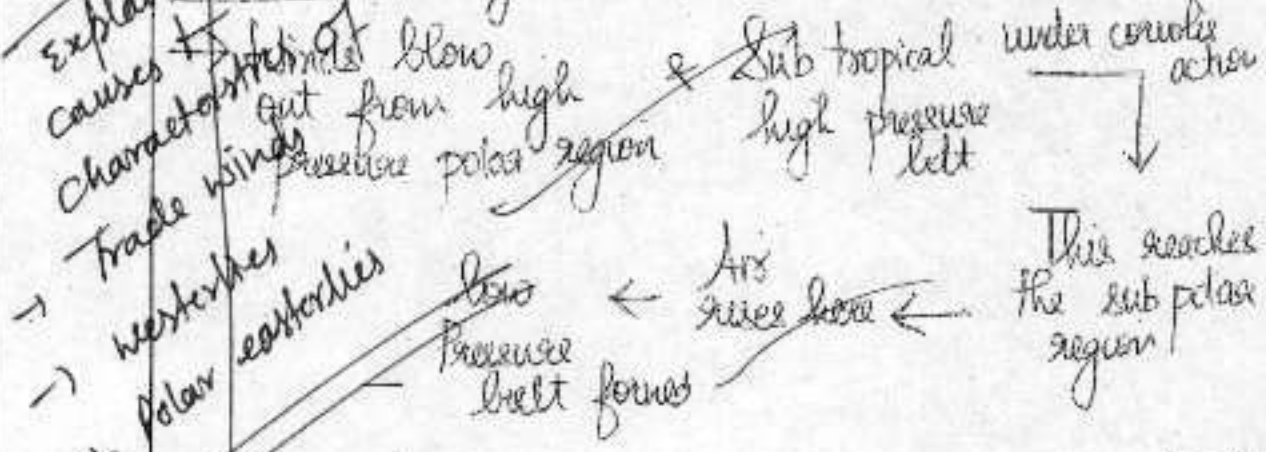 Explai
causes &
characteristics of
→ Trade winds
→ westerlies
Polar easterlies
Winds blow
out from high
pressure polar region
& Sub tropical
high pressure
belt
under coriolis
action
This reaches
the sub polar
region
←
Air
rises here
←
low
Pressure
belt formed